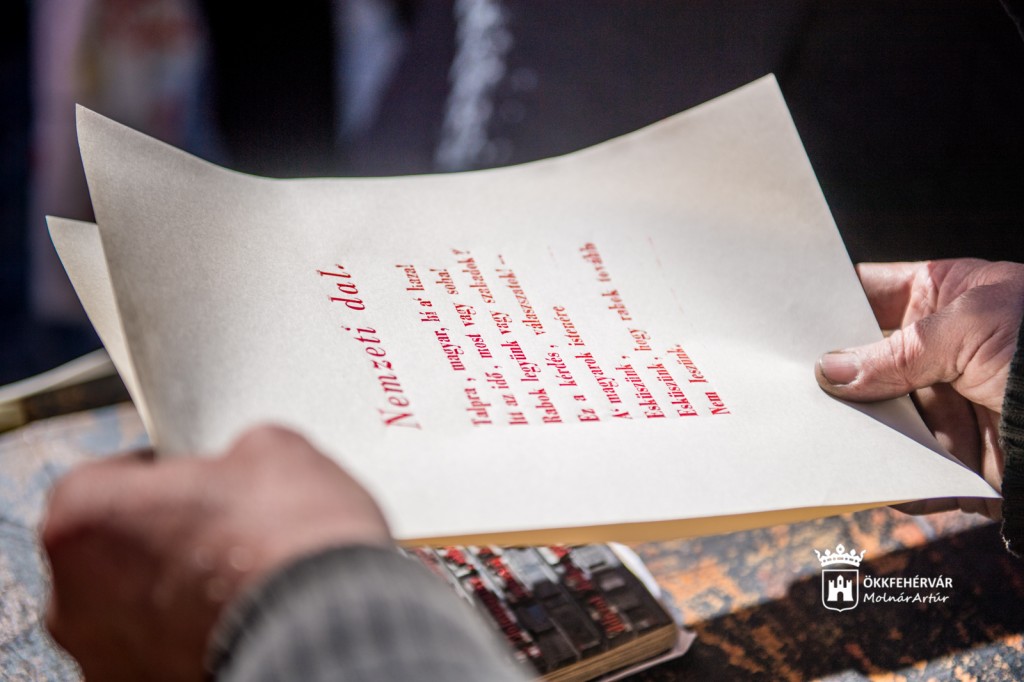 Nemzeti dal.
Talpra, magyar, hí a' haza!
Itt az idő, most vagy soha!
Rabok legyünk vagy szabadok?
Ez a kérdés, válasszatok! –
A' magyarok istenére
Esküszünk,
Esküszünk, hogy rabok tovább
Nem leszünk.
ÖKKFEHÉRVÁR
MolnárArtúr